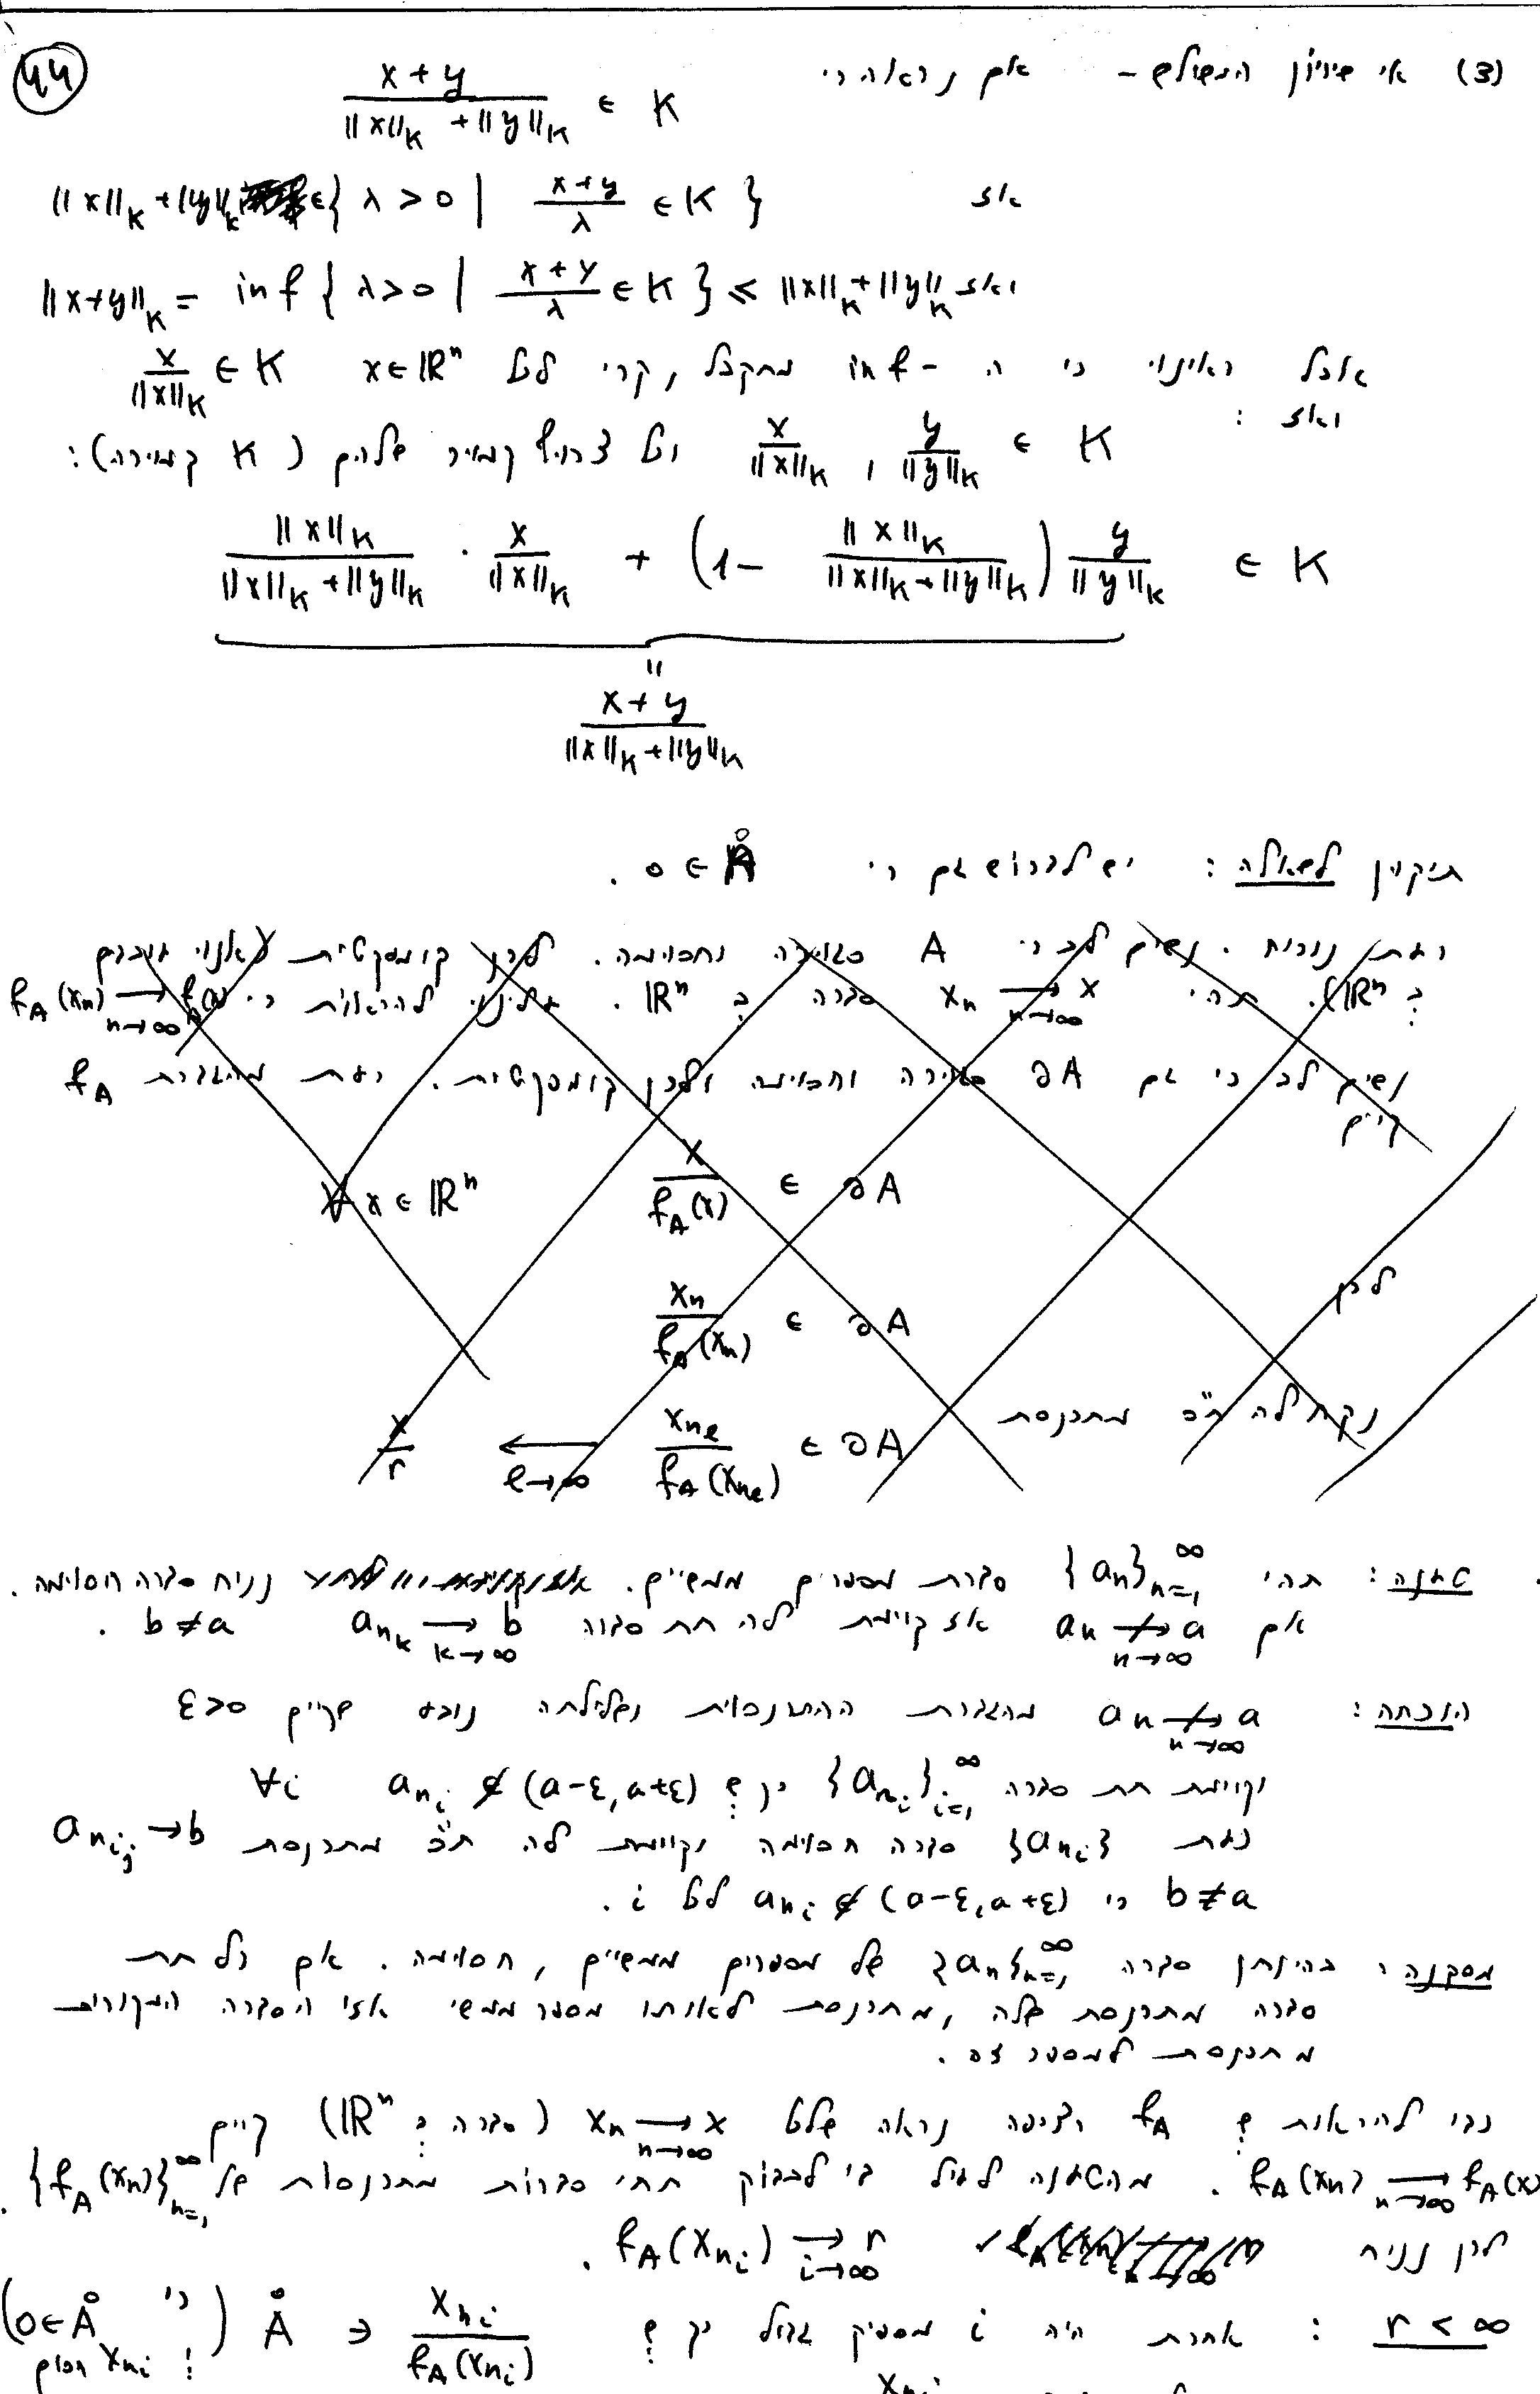 44
(3) אי שיוויון המשולש – אם נראה כי $\frac{x+y}{\|x\|_K+\|y\|_K} \in K$
אז $\|x\|_K+\|y\|_K \in \{ \lambda>0 \mid \frac{x+y}{\lambda} \in K \}$
ואז $\|x+y\|_K = \inf \{ \lambda>0 \mid \frac{x+y}{\lambda} \in K \} \leq \|x\|_K+\|y\|_K$
אבל ראינו כי ה-inf מתקבל, קרי לכל $x \in \mathbb{R}^n$ $\frac{x}{\|x\|_K} \in K$
ואז :
$\frac{x}{\|x\|_K} , \frac{y}{\|y\|_K} \in K$ וכל צרוף קמור שלהם (K קמורה):
$\frac{\|x\|_K}{\|x\|_K+\|y\|_K} \cdot \frac{x}{\|x\|_K} + \left(1-\frac{\|x\|_K}{\|x\|_K+\|y\|_K}\right)\frac{y}{\|y\|_K} \in K$
"
$\frac{x+y}{\|x\|_K+\|y\|_K}$
תיקון לשאלה : יש לדרוש גם כי $0 \in \mathring{A}$ .
כעת נוכיח. נשים לב כי A סגורה וחסומה. לכן קומפקטית (אנו עובדים
ב $\mathbb{R}^n$). תהי $x_n \xrightarrow[n\to\infty]{} x$ סדרה ב $\mathbb{R}^n$. עלינו להראות כי $f_A(x_n) \xrightarrow[n\to\infty]{} f_A(x)$
נשים לב כי גם $\partial A$ סגורה וחסומה ולכן קומפקטית. כעת מהגדרת $f_A$
קיים
$\forall x \in \mathbb{R}^n$ $\frac{x}{f_A(x)} \in \partial A$
לכן $\frac{x_n}{f_A(x_n)} \in \partial A$
נקח לה ת"ס מתכנסת $\frac{x}{r} \xleftarrow[l\to\infty]{} \frac{x_{n_l}}{f_A(x_{n_l})} \in \partial A$
טענה: תהי $\{a_n\}_{n=1}^{\infty}$ סדרת מספרים ממשיים. נניח סדרה חסומה.
אם $a_n \not\xrightarrow[n\to\infty]{} a$ אז קיימת לה תת סדרה $a_{n_k} \xrightarrow[k\to\infty]{} b$ $b \neq a$ .
הוכחה: $a_n \not\xrightarrow[n\to\infty]{} a$ מהגדרת ההתכנסות ושלילתה נובע שקיים $\varepsilon>0$
וקיימת תת סדרה $\{a_{n_i}\}_{i=1}^{\infty}$ כך ש $a_{n_i} \notin (a-\varepsilon, a+\varepsilon)$ $\forall i$
כעת $\{a_{n_i}\}$ סדרה חסומה וקיימת לה ת"ס מתכנסת $a_{n_{i_j}} \to b$
$b \neq a$ כי $a_{n_i} \notin (a-\varepsilon, a+\varepsilon)$ לכל i .
מסקנה : בהינתן סדרה $\{a_n\}_{n=1}^{\infty}$ של מספרים ממשיים, חסומה. אם כל תת
סדרה מתכנסת שלה, מתכנסת לאותו מספר ממשי אזי הסדרה המקורית
מתכנסת למספר זה .
כדי להראות ש $f_A$ רציפה נראה שלכל $x_n \xrightarrow[n\to\infty]{} x$ (סדרה ב $\mathbb{R}^n$) קיים
$f_A(x_n) \xrightarrow[n\to\infty]{} f_A(x)$ . מהטענה לעיל די לבדוק תתי סדרות מתכנסות של $\{f_A(x_n)\}_{n=1}^{\infty}$ .
לכן נניח $f_A(x_{n_i}) \xrightarrow[i\to\infty]{} r$ .
$r < \infty$ : אחרת היה i מספיק גדול כך ש $\frac{x_{n_i}}{f_A(x_{n_i})} \in \mathring{A}$ (כי $0 \in \mathring{A}$ ו $x_{n_i}$ חסום)
$x_{n_i}$